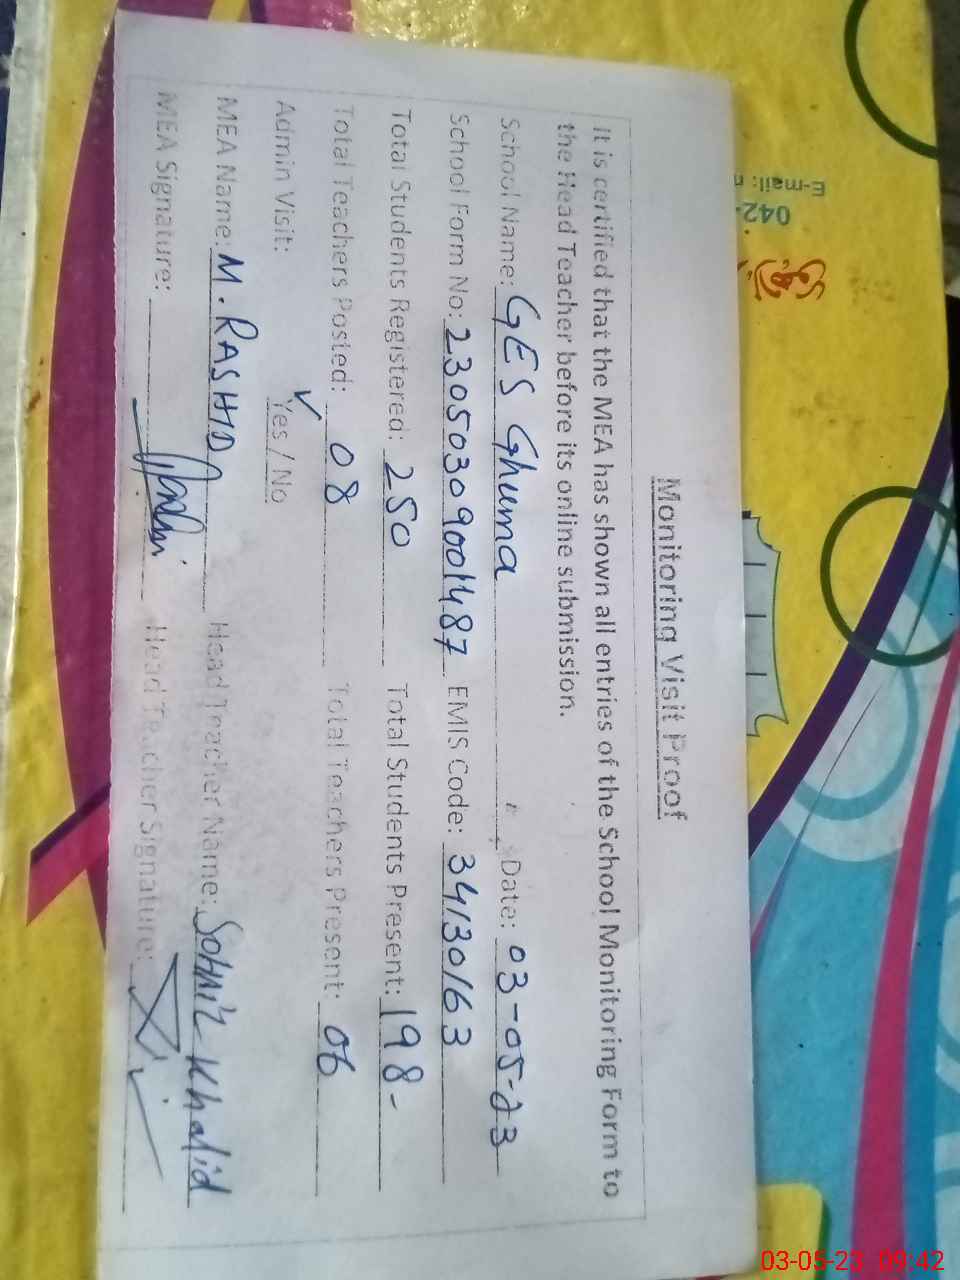 Monitoring Visit Proof
It is certified that the MEA has shown all entries of the School Monitoring Form to
the Head Teacher before its online submission.
School Name: GES Ghuma Date: 03-05-23
School Form No: 2305030900487 EMIS Code: 34130163
Total Students Registered: 250 Total Students Present: 198-
Total Teachers Posted: 08 Total Teachers Present: 06
Admin Visit: Yes / No
MEA Name: M. RASHID Head Teacher Name: Khalid
MEA Signature: Head Teacher Signature:
042-
E-mail:
03-05-23 09:42